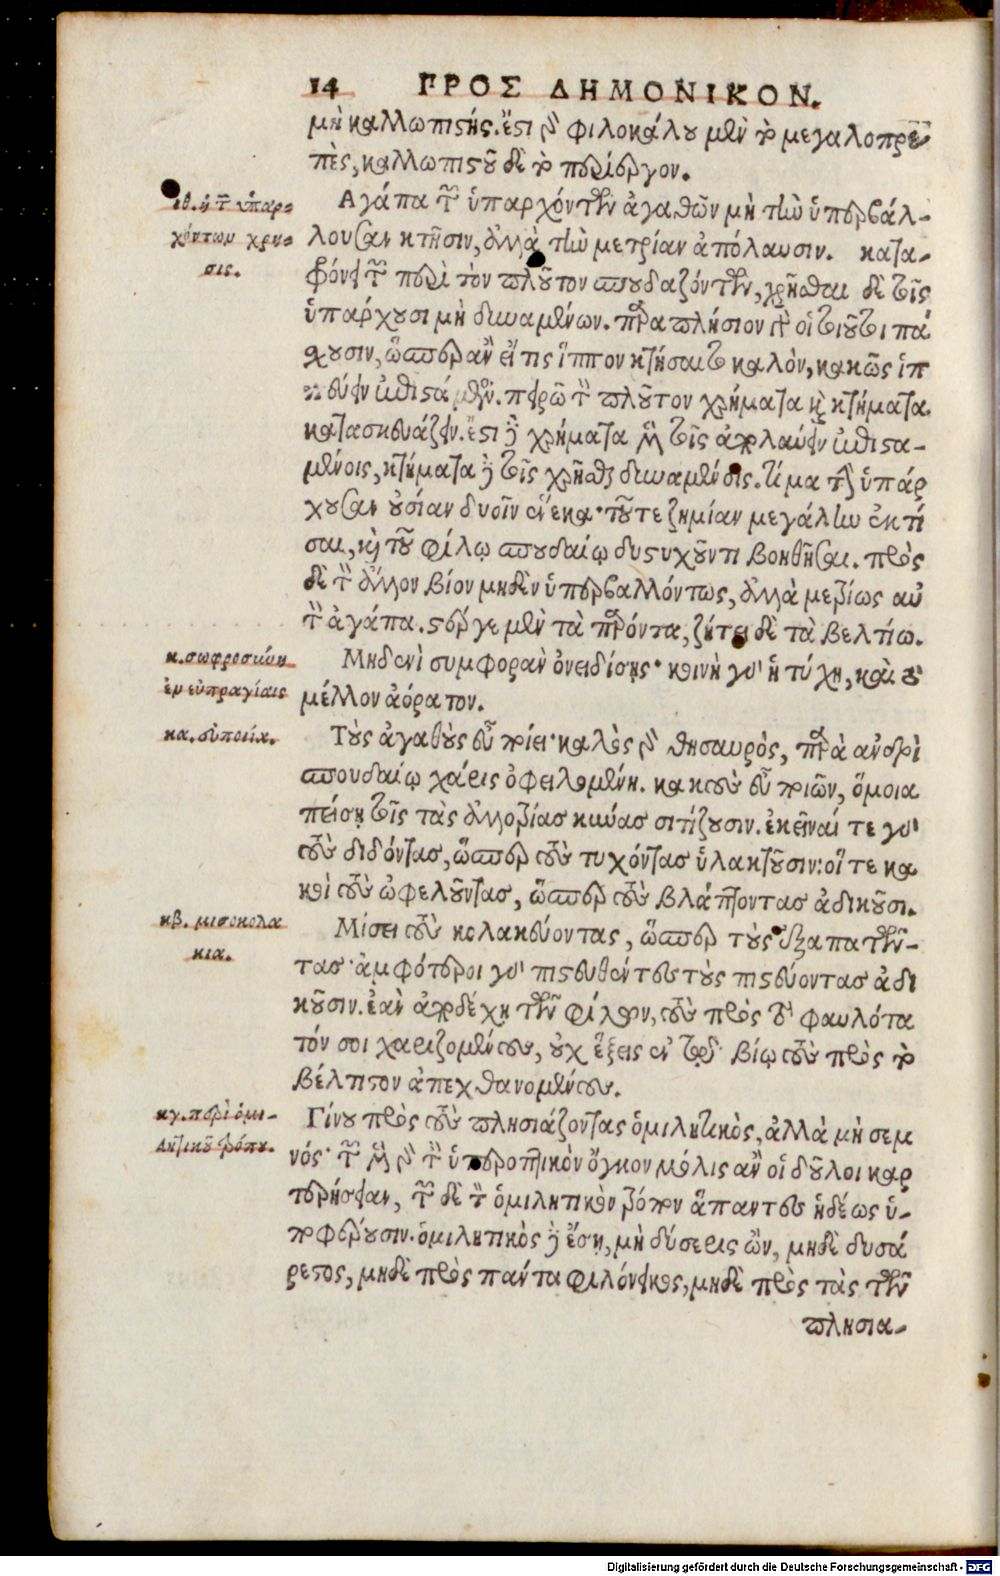 14 ΠΡΟΣ ΔΗΜΟΝΙΚΟΝ.
μὴ καλλωπιστής. ἔστι δὲ φιλοκάλου μὲν τὸ μεγαλοπρε
πὲς, καλλωπιστοῦ δὲ τὸ περίεργον.
ιθ. ἡ τῶν ὑπαρ-
χόντων χρη-
σις.
Ἀγάπα τῶν ὑπαρχόντων ἀγαθῶν μὴ τὴν ὑπερβάλ-
λουσαν κτῆσιν, ἀλλὰ τὴν μετρίαν ἀπόλαυσιν. κατα-
φρόνει τῶν περὶ τὸν πλοῦτον σπουδαζόντων, χρῆσθαι δὲ τοῖς
ὑπάρχουσι μὴ δυναμένων. παραπλήσιον γὰρ οἱ τοιοῦτοι πά
σχουσιν, ὥσπερ ἂν εἴ τις ἵππον κτήσαιτο καλὸν, κακῶς ἱπ
πεύειν ἐπιστάμενος. πειρῶ τὸν πλοῦτον χρήματα καὶ κτήματα
κατασκευάζειν. ἔστι δὲ χρήματα μὲν τοῖς ἀπολαύειν ἐπιστα-
μένοις, κτήματα δὲ τοῖς χρῆσθαι δυναμένοις. τίμα τὴν ὑπάρ
χουσαν οὐσίαν δυοῖν ἕνεκα· τοῦ τε ζημίαν μεγάλην ἐκτί
σαι, καὶ τοῦ φίλῳ σπουδαίῳ δυστυχοῦντι βοηθῆσαι. πρὸς
δὲ τὸν ἄλλον βίον μηδὲν ὑπερβαλλόντως, ἀλλὰ μετρίως αὐ
τὸν ἀγάπα. στέργε μὲν τὰ παρόντα, ζήτει δὲ τὰ βελτίω.
κ. σωφροσιώη
ἐν εὐπραγίαις
Μηδενὶ συμφορὰν ὀνειδίσῃς· κοινὴ γὰρ ἡ τύχη, καὶ τὸ
μέλλον ἀόρατον.
κα. εὐποιία.
Τοὺς ἀγαθοὺς εὖ ποίει· καλὸς γὰρ θησαυρὸς, παρὰ ἀνδρὶ
σπουδαίῳ χάρις ὀφειλομένη. κακοὺς εὖ ποιῶν, ὅμοια
πείσῃ τοῖς τὰς ἀλλοτρίας κύνας σιτίζουσιν. ἐκεῖναί τε γὰρ
τοὺς διδόντας, ὥσπερ τοὺς τυχόντας ὑλακτοῦσιν: οἵ τε κα
κοὶ τοὺς ὠφελοῦντας, ὥσπερ τοὺς βλάπτοντας ἀδικοῦσι.
κβ. μισοκολα
κια.
Μίσει τοὺς κολακεύοντας, ὥσπερ τοὺς ἐξαπατῶν-
τας· ἀμφότεροι γὰρ πιστευθέντες τοὺς πιστεύοντας ἀδι
κοῦσιν. ἐὰν ἀποδέχῃ τῶν φίλων, τοὺς πρὸς τὸ φαυλότα
τόν σοι χαριζομένους, οὐχ ἕξεις ἐν τῷ βίῳ τοὺς πρὸς τὸ
βέλτιστον ἀπεχθανομένους.
κγ. περὶ ὁμι-
λητικοῦ τρόπου.
Γίνου πρὸς τοὺς πλησιάζοντας ὁμιλητικὸς, ἀλλὰ μὴ σεμ
νός· τὸν μὲν γὰρ τῶν ὑπεροπτικὸν ὄγκον μόλις ἂν οἱ δοῦλοι καρ
τερήσειαν, τὸν δὲ τῶν ὁμιλητικὸν τρόπον ἅπαντες ἡδέως ὑ-
ποφέρουσιν. ὁμιλητικὸς δὲ ἔσῃ, μὴ δύσερις ὢν, μηδὲ δυσά
ρεστος, μηδὲ πρὸς πάντα φιλόνεικος, μηδὲ πρὸς τὰς τῶν
πλησια-
Digitalisierung gefördert durch die Deutsche Forschungsgemeinschaft - DFG